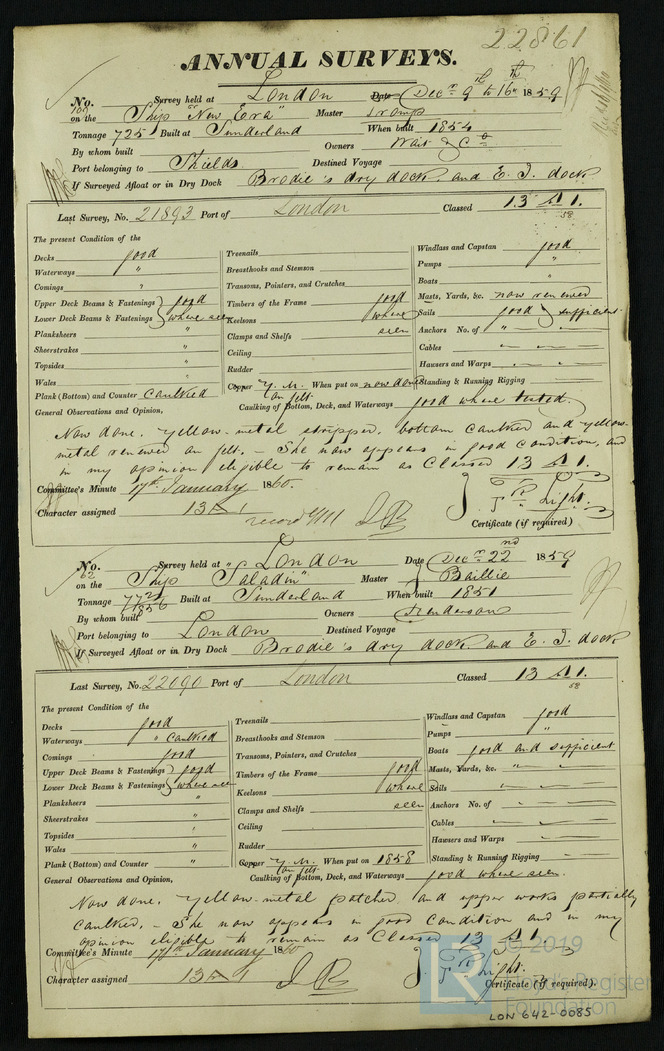 22861
ANNUAL SURVEYS.
No. 100 Survey held at London Date Decr 9th to 16th 1859
on the Ship "New Era" Master
Tonnage 725 Built at Sunderland When built 1854
By whom built Owners Wait & Co
Port belonging to Shields Destined Voyage
If Surveyed Afloat or in Dry Dock Brodie's dry dock and E. I. dock
Last Survey, No. 21893 Port of London Classed 13 A 1. 58
The present Condition of the
Decks good
Waterways "
Comings "
Upper Deck Beams & Fastenings good
Lower Deck Beams & Fastenings where seen
Planksheers "
Sheerstrakes "
Topsides "
Wales "
Plank (Bottom) and Counter Caulked
Treenails
Breasthooks and Stemson
Transoms, Pointers, and Crutches
Timbers of the Frame good
Keelsons where
Clamps and Shelfs seen
Ceiling
Rudder
Copper Y. M. on felt When put on now done
Windlass and Capstan good
Pumps "
Boats "
Masts, Yards, &c. now renewed
Sails good sufficient
Anchors No. of "
Cables
Hawsers and Warps
Standing & Running Rigging
General Observations and Opinion, Caulking of Bottom, Deck, and Waterways good where tested.
Now done. Yellow-metal stripped, bottom caulked and yellow-
metal renewed on felt. – She now appears in good condition, and
in my opinion eligible to remain as Classed 13 A 1.
Committee's Minute 17th January 1860.
Character assigned 13 A 1
J. Tr. Light.
Certificate (if required)
No. 62 Survey held at London Date Decr 22nd 1859
on the Ship "Saladin" Master J Baillie
Tonnage Built at Sunderland When built 1851
By whom built Owners Henderson
Port belonging to London Destined Voyage
If Surveyed Afloat or in Dry Dock Brodie's dry dock and E. I. dock
Last Survey, No. 22090 Port of London Classed 13 A 1. 58
The present Condition of the
Decks good
Waterways " Caulked
Comings good
Upper Deck Beams & Fastenings good
Lower Deck Beams & Fastenings where seen
Planksheers "
Sheerstrakes "
Topsides "
Wales "
Plank (Bottom) and Counter "
Treenails
Breasthooks and Stemson
Transoms, Pointers, and Crutches
Timbers of the Frame good
Keelsons where
Clamps and Shelfs seen
Ceiling
Rudder
Copper Y. M. on felt When put on 1858
Windlass and Capstan good
Pumps "
Boats good and sufficient
Masts, Yards, &c. "
Sails
Anchors No. of
Cables
Hawsers and Warps
Standing & Running Rigging
General Observations and Opinion, Caulking of Bottom, Deck, and Waterways good where seen.
Now done. Yellow-metal patched and upper works partially
Caulked. – She now appears in good Condition and in my
opinion eligible to remain as Classed 13 A 1.
Committee's Minute 17th January 1860
Character assigned 13 A 1
J. Tr. Light.
Certificate (if required).
LR © 2019
Lloyd's Register
Foundation
LON 642-0085